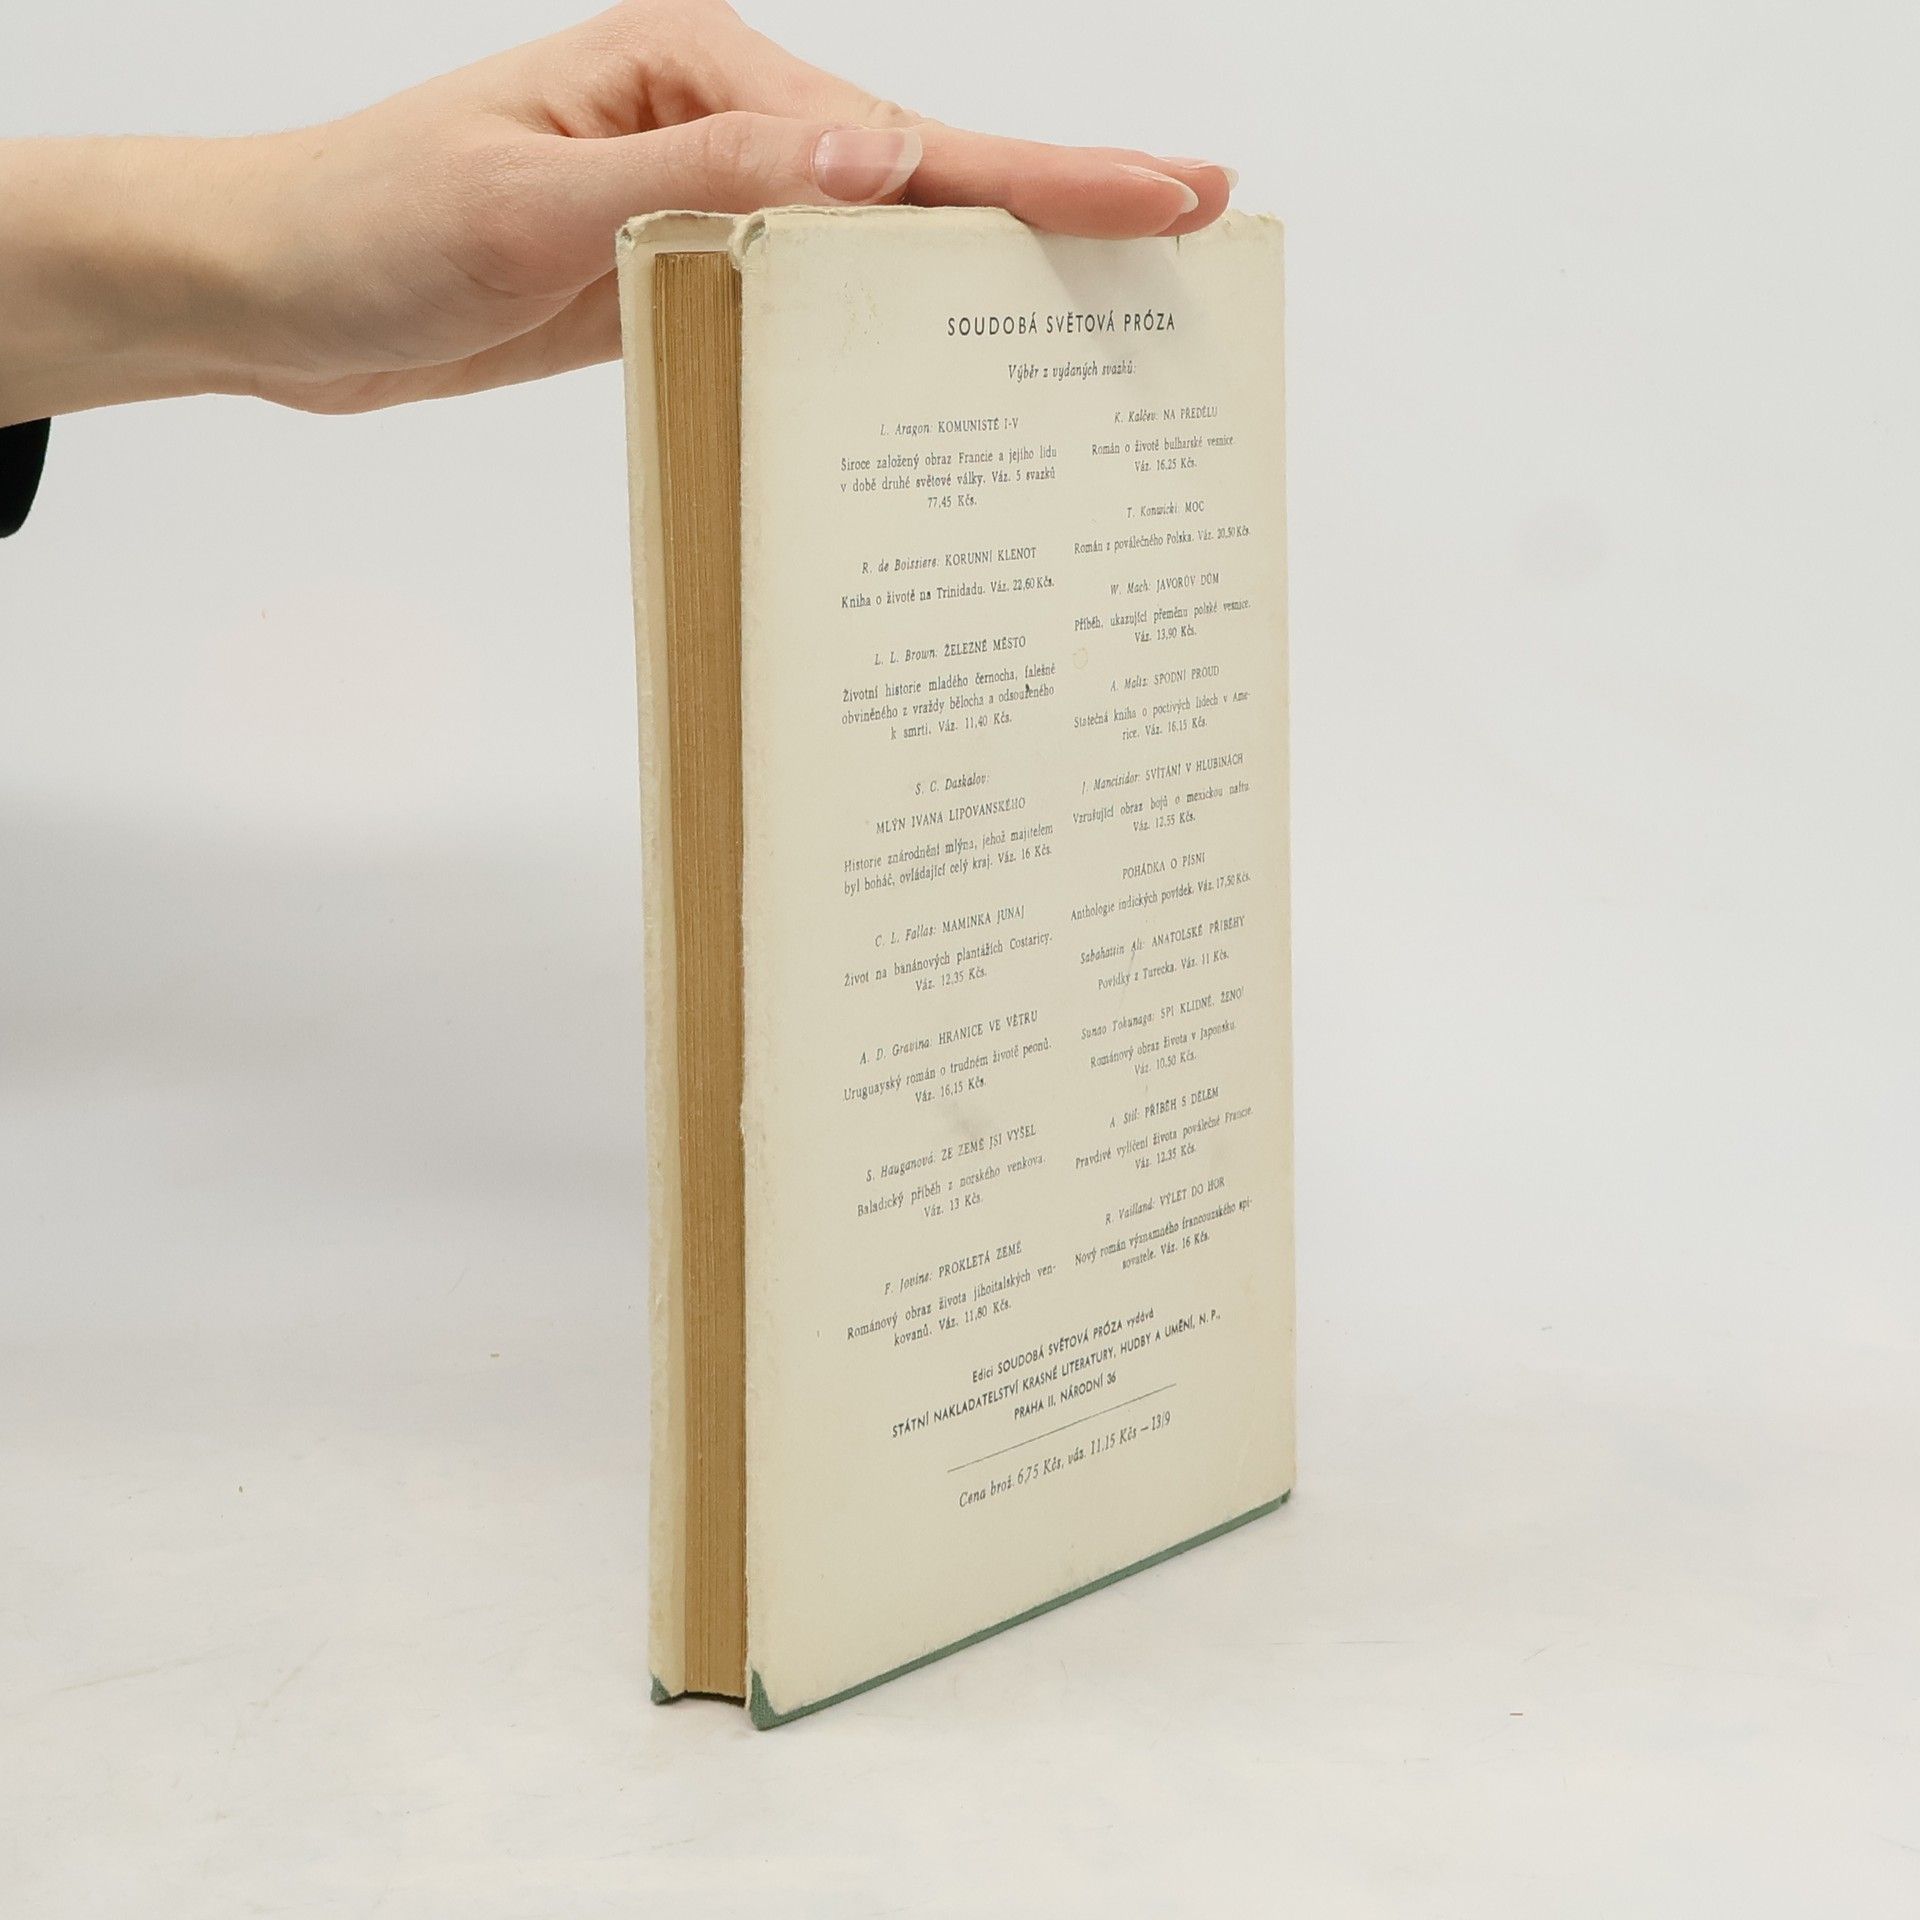 SOUDOBÁ SVĚTOVÁ PRÓZA
Výběr z vydaných svazků:
L. Aragon: KOMUNISTÉ I-V
Široce založený obraz Francie a jejího lidu
v době druhé světové války. Váz. 5 svazků
77,45 Kčs.
R. de Boissiere: KORUNNÍ KLENOT
Kniha o životě na Trinidadu. Váz. 22,60 Kčs.
L. L. Brown: ŽELEZNÉ MĚSTO
Životní historie mladého černocha, falešně
obviněného z vraždy bělocha a odsouzeného
k smrti. Váz. 11,40 Kčs.
S. C. Daskalov:
MLÝN IVANA LIPOVANSKÉHO
Historie znárodnění mlýna, jehož majitelem
byl boháč, ovládající celý kraj. Váz. 16 Kčs.
C. L. Fallas: MAMINKA JUNAJ
Život na banánových plantážích Costaricy.
Váz. 12,35 Kčs.
A. D. Gravina: HRANICE VE VĚTRU
Uruguayský román o trudném životě peonů.
Váz. 16,15 Kčs.
S. Hauganová: ZE ZEMĚ JSI VYŠEL
Baladický příběh z norského venkova.
Váz. 13 Kčs.
F. Jovine: PROKLETÁ ZEMĚ
Románový obraz života jihoitalských ven-
kovanů. Váz. 11,80 Kčs.
K. Kalčev: NA PŘEDĚLU
Román o životě bulharské vesnice.
Váz. 16,25 Kčs.
T. Konwicki: MOC
Román z poválečného Polska. Váz. 20,50 Kčs.
W. Mach: JAVORŮV DŮM
Příběh, ukazující přeměnu polské vesnice.
Váz. 13,90 Kčs.
A. Maltz: SPODNÍ PROUD
Statečná kniha o poctivých lidech v Ame-
rice. Váz. 16,15 Kčs.
J. Mancisidor: SVÍTÁNÍ V HLUBINÁCH
Vzrušující obraz bojů o mexickou naftu
Váz. 12,55 Kčs.
POHÁDKA O PÍSNI
Anthologie indických povídek. Váz. 17,50 Kčs.
Sabahattin Ali: ANATOLSKÉ PŘÍBĚHY
Povídky z Turecka. Váz. 11 Kčs.
Sunao Tokunaga: SPI KLIDNĚ, ŽENO!
Románový obraz života v Japonsku.
Váz. 10,50 Kčs.
A. Stil: PŘÍBĚH S DĚLEM
Pravdivé vylíčení života poválečné Francie.
Váz. 12,35 Kčs.
R. Vailland: VÝLET DO HOR
Nový román významného francouzského spi-
sovatele. Váz. 16 Kčs.
Edici SOUDOBÁ SVĚTOVÁ PRÓZA vydává
STÁTNÍ NAKLADATELSTVÍ KRASNÉ LITERATURY, HUDBY A UMĚNÍ, N. P.,
PRAHA II, NÁRODNÍ 36
Cena brož. 6,75 Kčs, váz. 11,15 Kčs — 13/9